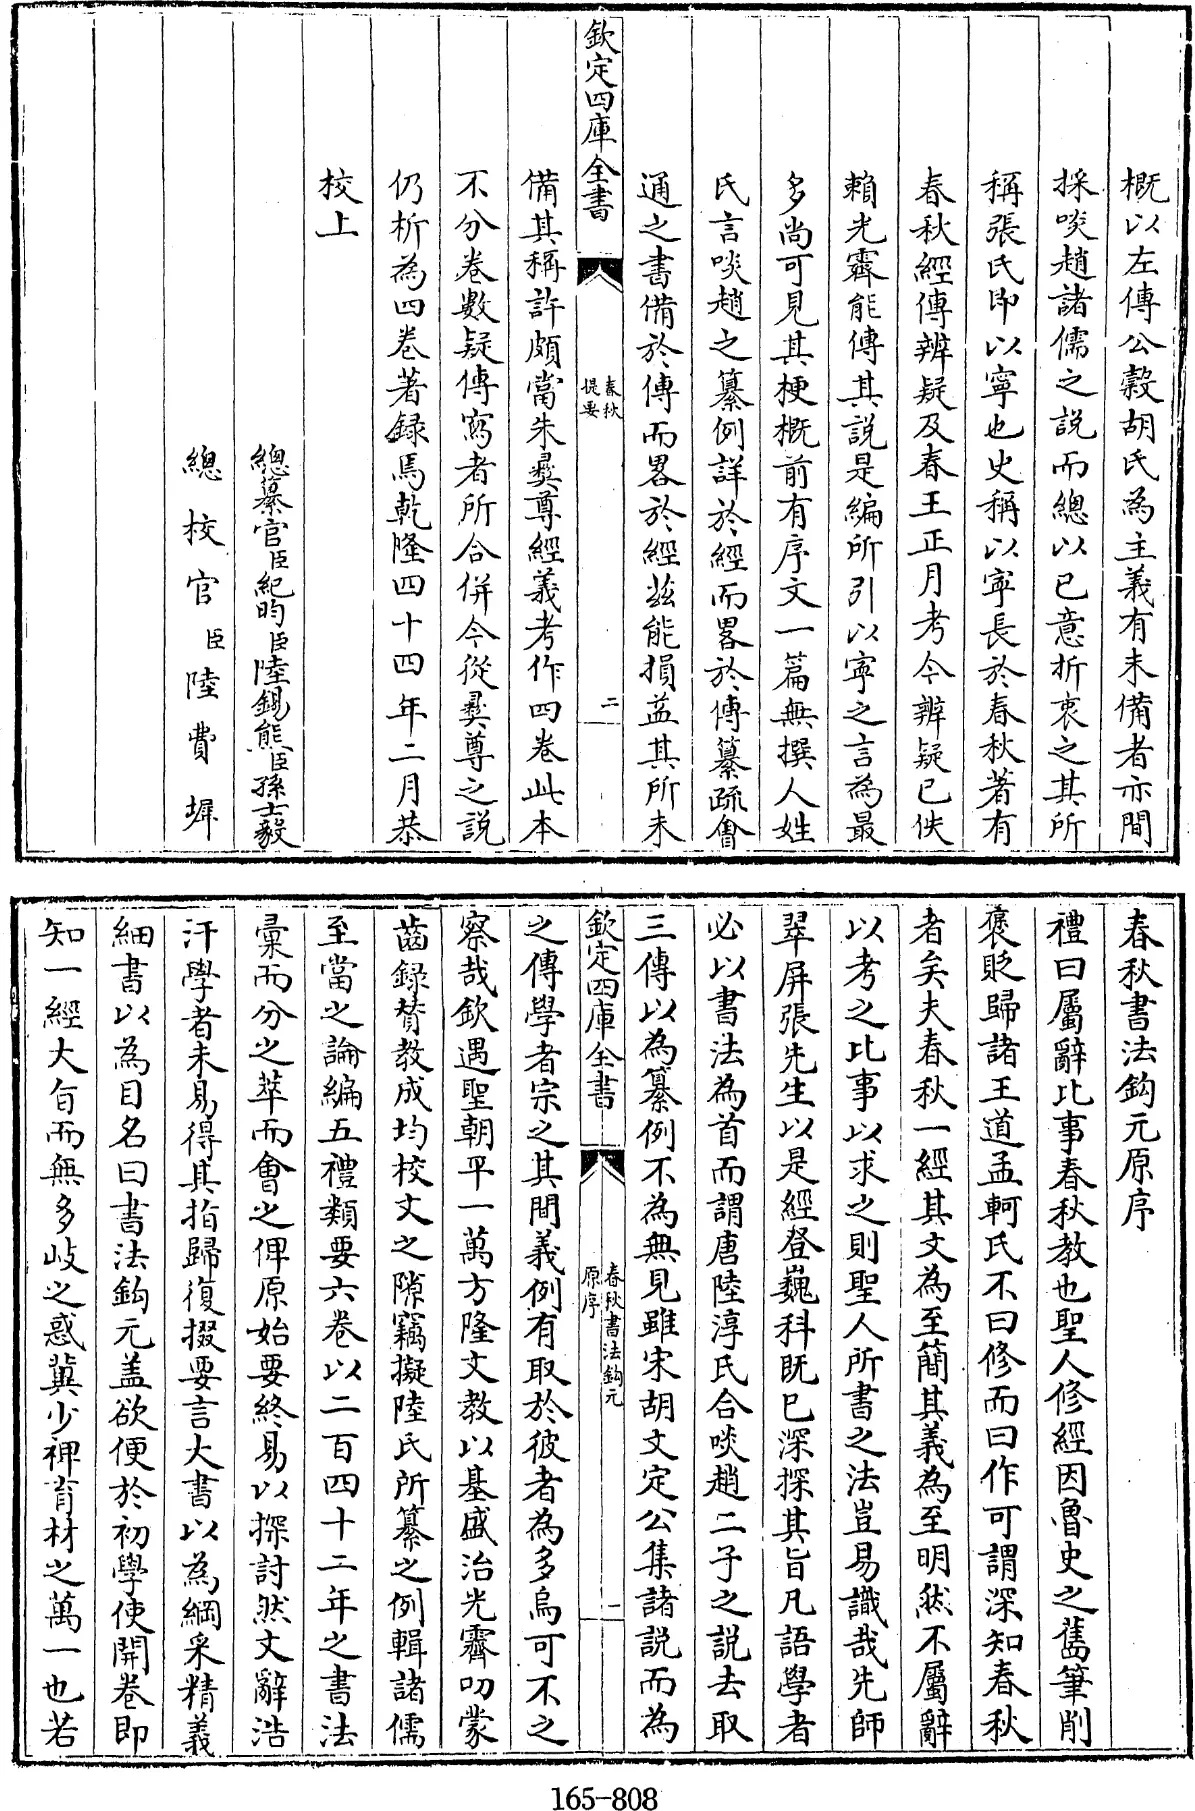 概以左傳公穀胡氏為主義有未備者亦間
採啖趙諸儒之説而總以已意折衷之其所
稱張氏即以寧也史稱以寧長於春秋著有
春秋經傳辨疑及春王正月考今辨疑已佚
賴光霽能傳其説是編所引以寧之言為最
多尚可見其梗概前有序文一篇無撰人姓
氏言啖趙之纂例詳於經而畧於傳纂疏會
通之書備於傳而畧於經兹能損益其所未
欽定四庫全書
春秋
提要
二
備其稱許頗當朱彛尊經義考作四卷此本
不分卷數疑傳寫者所合併今從彛尊之説
仍析為四卷著録焉乾隆四十四年二月恭
校上
總纂官臣紀昀臣陸錫熊臣孫士毅
總校官臣陸費墀
春秋書法鈎元原序
禮曰屬辭比事春秋教也聖人修經因魯史之舊筆削
褒貶歸諸王道孟軻氏不曰修而曰作可謂深知春秋
者矣夫春秋一經其文為至簡其義為至明然不屬辭
以考之比事以求之則聖人所書之法豈易識哉先師
翠屏張先生以是經登巍科既已深探其旨凡語學者
必以書法為首而謂唐陸淳氏合啖趙二子之説去取
三傳以為纂例不為無見雖宋胡文定公集諸説而為
欽定四庫全書
春秋書法鈎元
原序
一
之傳學者宗之其間義例有取於彼者為多烏可不之
察哉欽遇聖朝平一萬方隆文教以基盛治光霽叨蒙
齒録贊教成均校文之隙竊擬陸氏所纂之例輯諸儒
至當之論編五禮類要六卷以二百四十二年之書法
彙而分之萃而會之俾原始要終易以探討然文辭浩
汗學者未易得其指歸復掇要言大書以為綱采精義
細書以為目名曰書法鈎元盖欲便於初學使開卷即
知一經大旨而無多岐之惑冀少裨育材之萬一也若
165-808